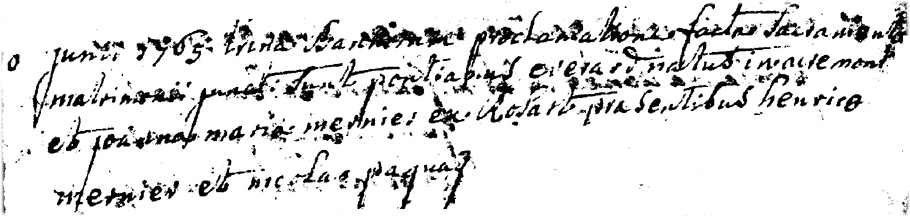 o junii 1765 trina Bannorum proclamatione facta Sacramento
matrimonii juncti sunt pontianus everard natus in
et joanna maria mernier ex Rosart praesentibus henrico
mernier et nicolas paquay